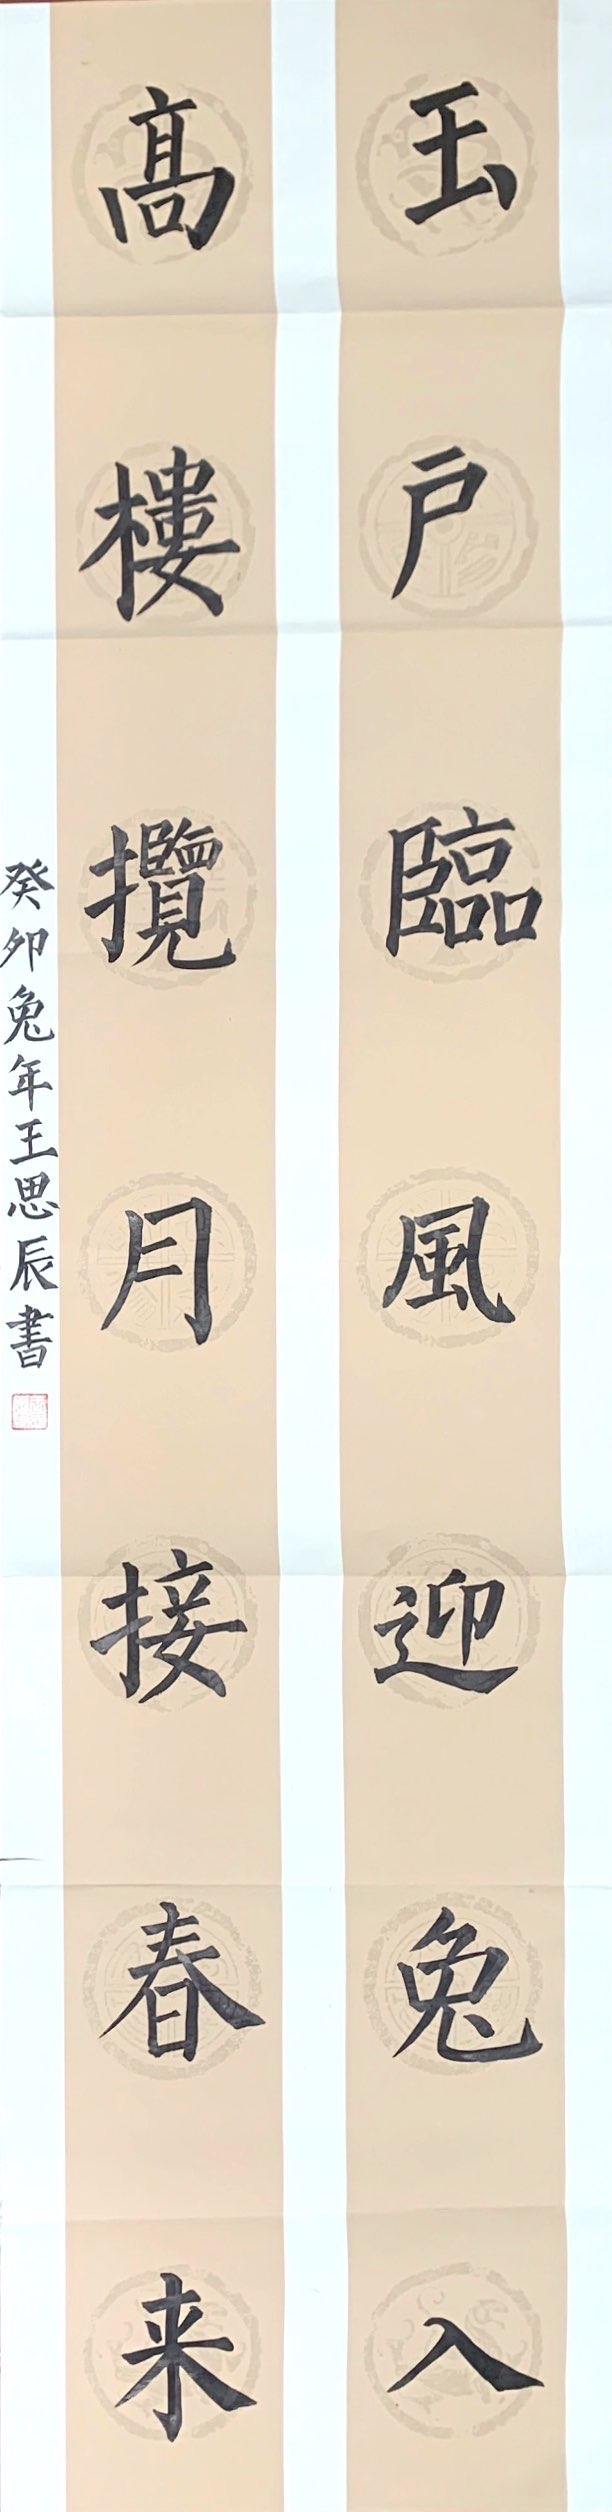 玉户臨風迎兔入
髙樓攬月接春来
癸卯兔年王思辰書